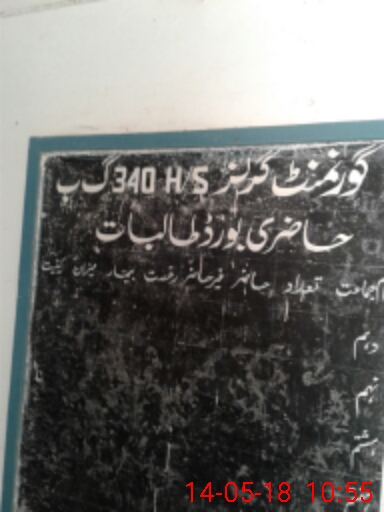 گورنمنٹ گرلز H/S 340 گ ب
حاضری بورڈ طالبات
جماعت تعداد حاضر غیرحاضر رخصت بیمار میزان کیفیت
دہم
نہم
ہشتم
14-05-18 10:55